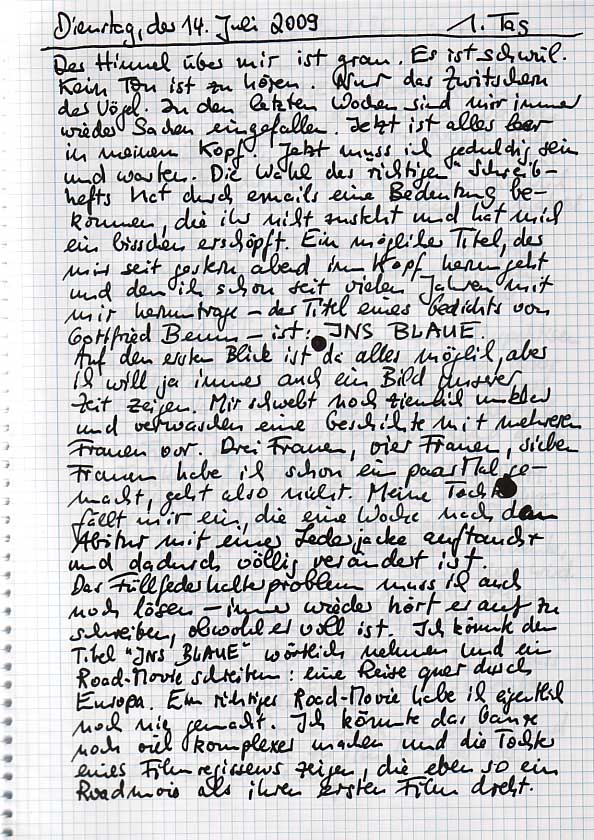 Dienstag, der 14. Juli 2009 1. Tag
Der Himmel über mir ist grau. Es ist schwül.
Kein Ton ist zu hören. Nur das Zwitschern
der Vögel. In den letzten Wochen sind mir immer
wieder Sachen eingefallen. Jetzt ist alles leer
in meinem Kopf. Jetzt muss ich geduldig sein
und warten. Die Wahl des "richtigen" Schreib-
hefts hat durch emails eine Bedeutung be-
kommen, die ihr nicht zusteht und hat mich
ein bisschen erschöpft. Ein möglicher Titel, der
mir seit gestern abend im Kopf herumgeht
und den ich schon seit vielen Jahren mit
mir herumtrage – der Titel eines Gedichts von
Gottfried Benn – ist: INS BLAUE.
Auf den ersten Blick ist da alles möglich, aber
ich will ja immer auch ein Bild unserer
Zeit zeigen. Mir schwebt noch ziemlich unklar
und verwaschen eine Geschichte mit mehreren
Frauen vor. Drei Frauen, vier Frauen, sieben
Frauen habe ich schon ein paar Mal ge-
macht, geht also nicht. Meine Tochter
fällt mir ein, die eine Woche nach dem
Abitur mit einer Lederjacke auftaucht
und dadurch völlig verändert ist.
Das Füllfederhalterproblem muss ich auch
noch lösen – immer wieder hört er auf zu
schreiben, obwohl er voll ist. Ich könnte den
Titel "INS BLAUE" wörtlich nehmen und ein
Road-Movie schreiben: eine Reise quer durch
Europa. Ein richtiges Road-Movie habe ich eigentlich
noch nie gemacht. Ich könnte das Ganze
noch viel komplexer machen und die Tochter
eines Filmregisseurs zeigen, die eben so ein
Roadmovie als ihren ersten Film dreht.